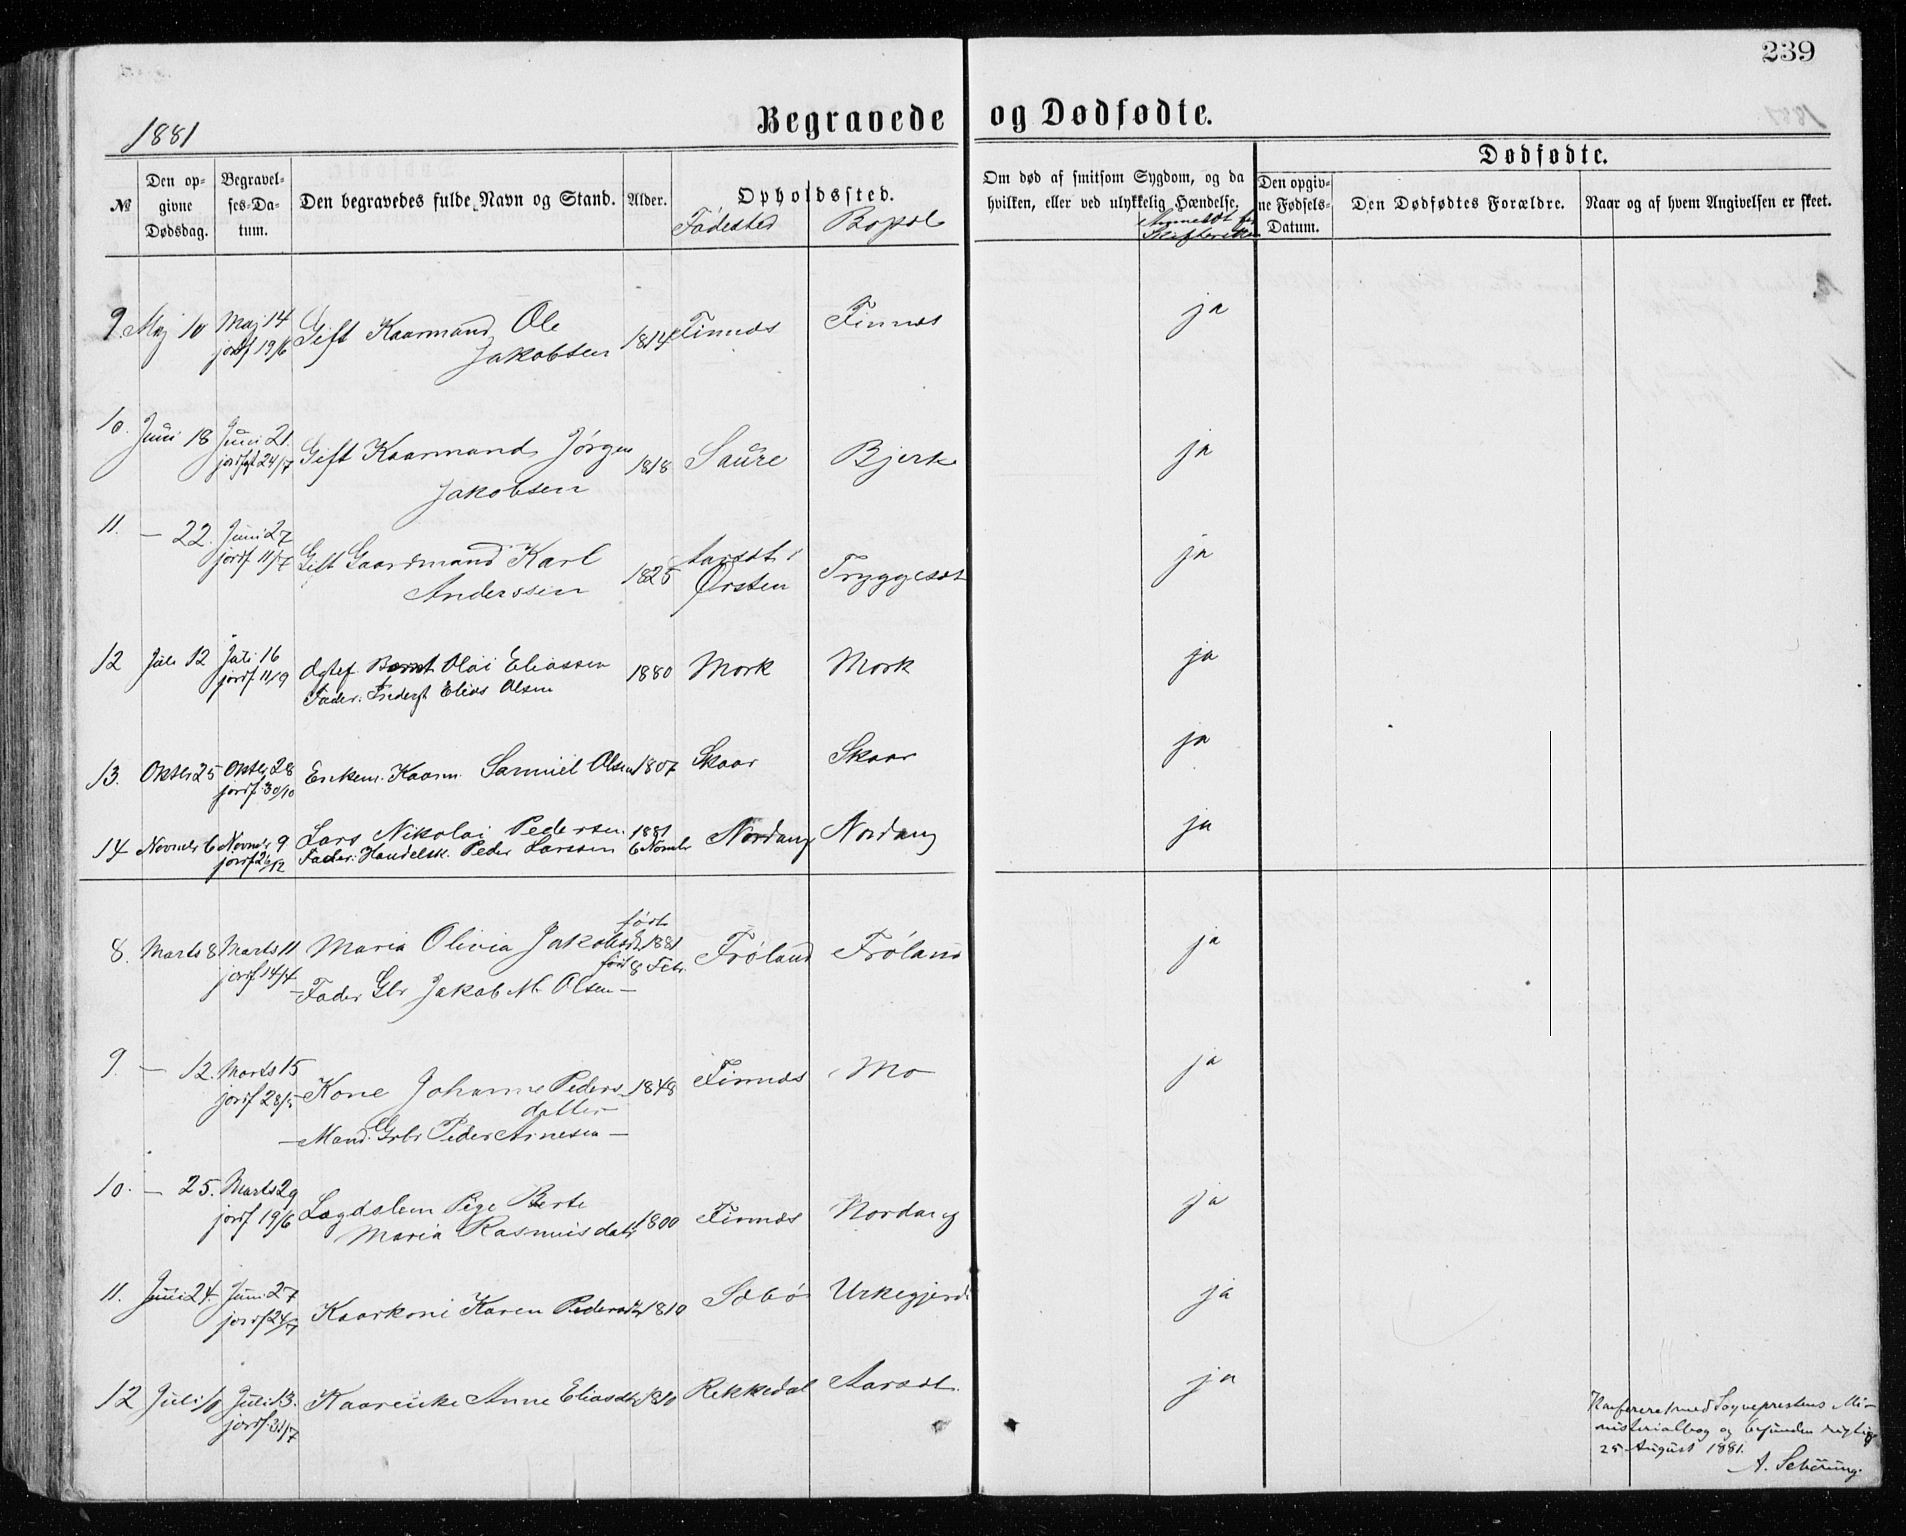 239
1881
Begravede og Dødfødte.
№
Den opgivne Dødsdag.
Begravelses-Datum.
Den begravedes fulde Navn og Stand.
Alder.
Opholdssted.
Fødested Bopæl
Om død af smitsom Sygdom, og da hvilken, eller ved ulykkelig Hændelse.
Anmeldt for Skifteretten
Dødfødte.
Den opgivne Fødsels-Datum.
Den Dødfødtes Forældre.
Naar og af hvem Angivelsen er skeet.
9. Maj 10 Maj 14 Gift Kaarmand Ole 1814 Finnes Finnes ja
jordf 19/6 Jakobsen
10. Juni 18 Juni 21. Gift Kaarmand Jørgen 1818 Saure Bjerke ja
jordf 24/7 Jakobsen
11. — 22. Juni 27 Gift Gaardmand Karl 1825 Aarset i Tryggeset ja
jordf 11/7 Anderssen Ørsten
12 Juli 12 Juli 16 Bernt Olai Eliassen 1880 Mork Mork ja
jordf 11/9 Fader: Elias Olsen
13. Oktbr 25 Oktbr 28 Enkem. Kaarm. Samuel Olsen 1807 Skaar Skaar ja
jordf. 30/10
14 Novmbr 6 Novmbr 9 Lars Nikolai Pedersen. 1881 Nordang Nordang ja
jordf 26/12 Fader: Handelsk. Peder Larssen 6 Novmbr
8. Marts 8 Marts 11 Maria Olivia Jakobsdtr født 1881 Frøland Frøland ja
jordf 14/4 — Fader Gbr Jakob M. Olsen — 8 Febr.
9. — 12. Marts 15 Kone Johanne Peders- 1848 Finnes Mo ja
jordf 28/5 datter
— Mand: Grbr Peder Arnesen —
10. — 25. Marts 29 Lægdslem Pige Berte 1800 Finnes Nordang ja
jordf 19/6 Maria Rasmusdatr
11. Juni 24. Juni 27 Kaarkone Karen Pedersdtr 1810 Sæbø Urkegjerde ja
jordf 24/7
12 Juli 10 Juli 13. Kaarenke Anne Eliasdtr 1810 Rekkedal Aarset. ja
jordf. 31/7
Konfereret med Sognepræstens Mi-
nisterialbog og befunden rigtig
25 August 1881.
A. Schöning.